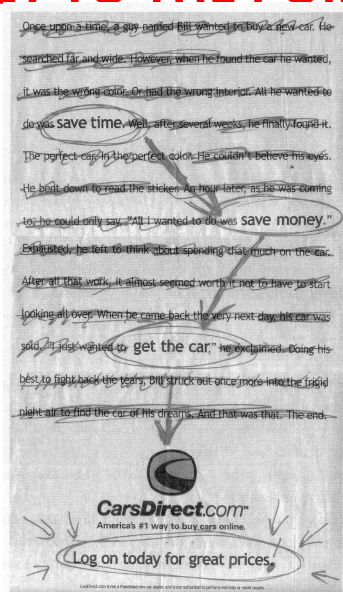 Once upon a time, a guy named Bill wanted to buy a new car. He
searched far and wide. However, when he found the car he wanted,
it was the wrong color. Or had the wrong interior. All he wanted to
do was save time. Well, after several weeks, he finally found it.
The perfect car. In the perfect color. He couldn't believe his eyes.
He bent down to read the sticker. An hour later, as he was coming
to, he could only say, "All I wanted to do was save money."
Exhausted, he left to think about spending that much on the car.
After all that work, it almost seemed worth it not to have to start
looking all over. When he came back the very next day, his car was
sold. "I just wanted to get the car," he exclaimed. Doing his
best to fight back the tears, Bill struck out once more into the frigid
night air to find the car of his dreams. And that was that. The end.
CarsDirect.com℠
America's #1 way to buy cars online.
Log on today for great prices.
CarsDirect.com is not a franchised new car dealer, and is not authorized to perform warranty or recall repairs.